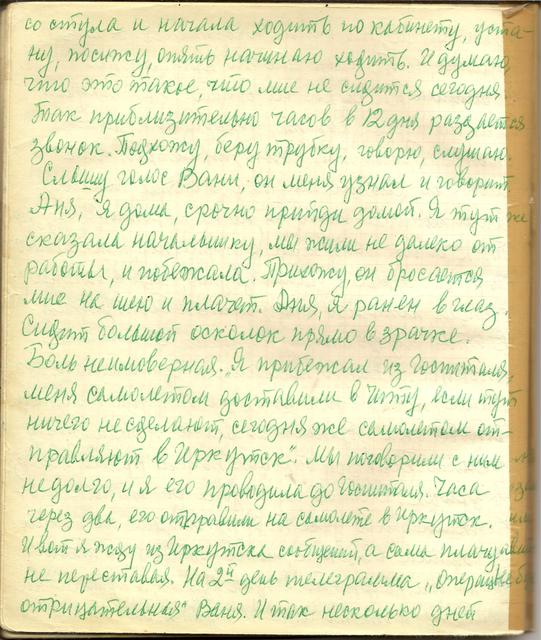 со стула и начала ходить по кабинету, уста-
ну, посижу, опять начинаю ходить. И думаю,
что это такое, что мне не сидится сегодня.
Так приблизительно часов в 12 дня раздается
звонок. Подхожу, беру трубку, говорю, слушаю.
Слышу голос Вани, он меня узнал и говорит,
Аня, я дома, срочно прийди домой. Я тут же
сказала начальнику, мы жили не далеко от
работы, и побежала. Прихожу, он бросается
мне на шею и плачет. Аня, я ранен в глаз.
Сидит большой осколок прямо в зрачке.
Боль неимоверная. Я прибежал из Госпиталя,
меня самолетом доставили в Читу, если тут
ничего не сделают, сегодня же самолетом от-
правляют в Иркутск". Мы поговорили с ним
недолго, и я его проводила до Госпиталя. Часа
через два, его отправили на самолете в Иркутск.
И вот я жду из Иркутска сообщений, а сама плачу
не переставая. На 2й день телеграмма „Операция
отрицательная" Ваня. И так несколько дней